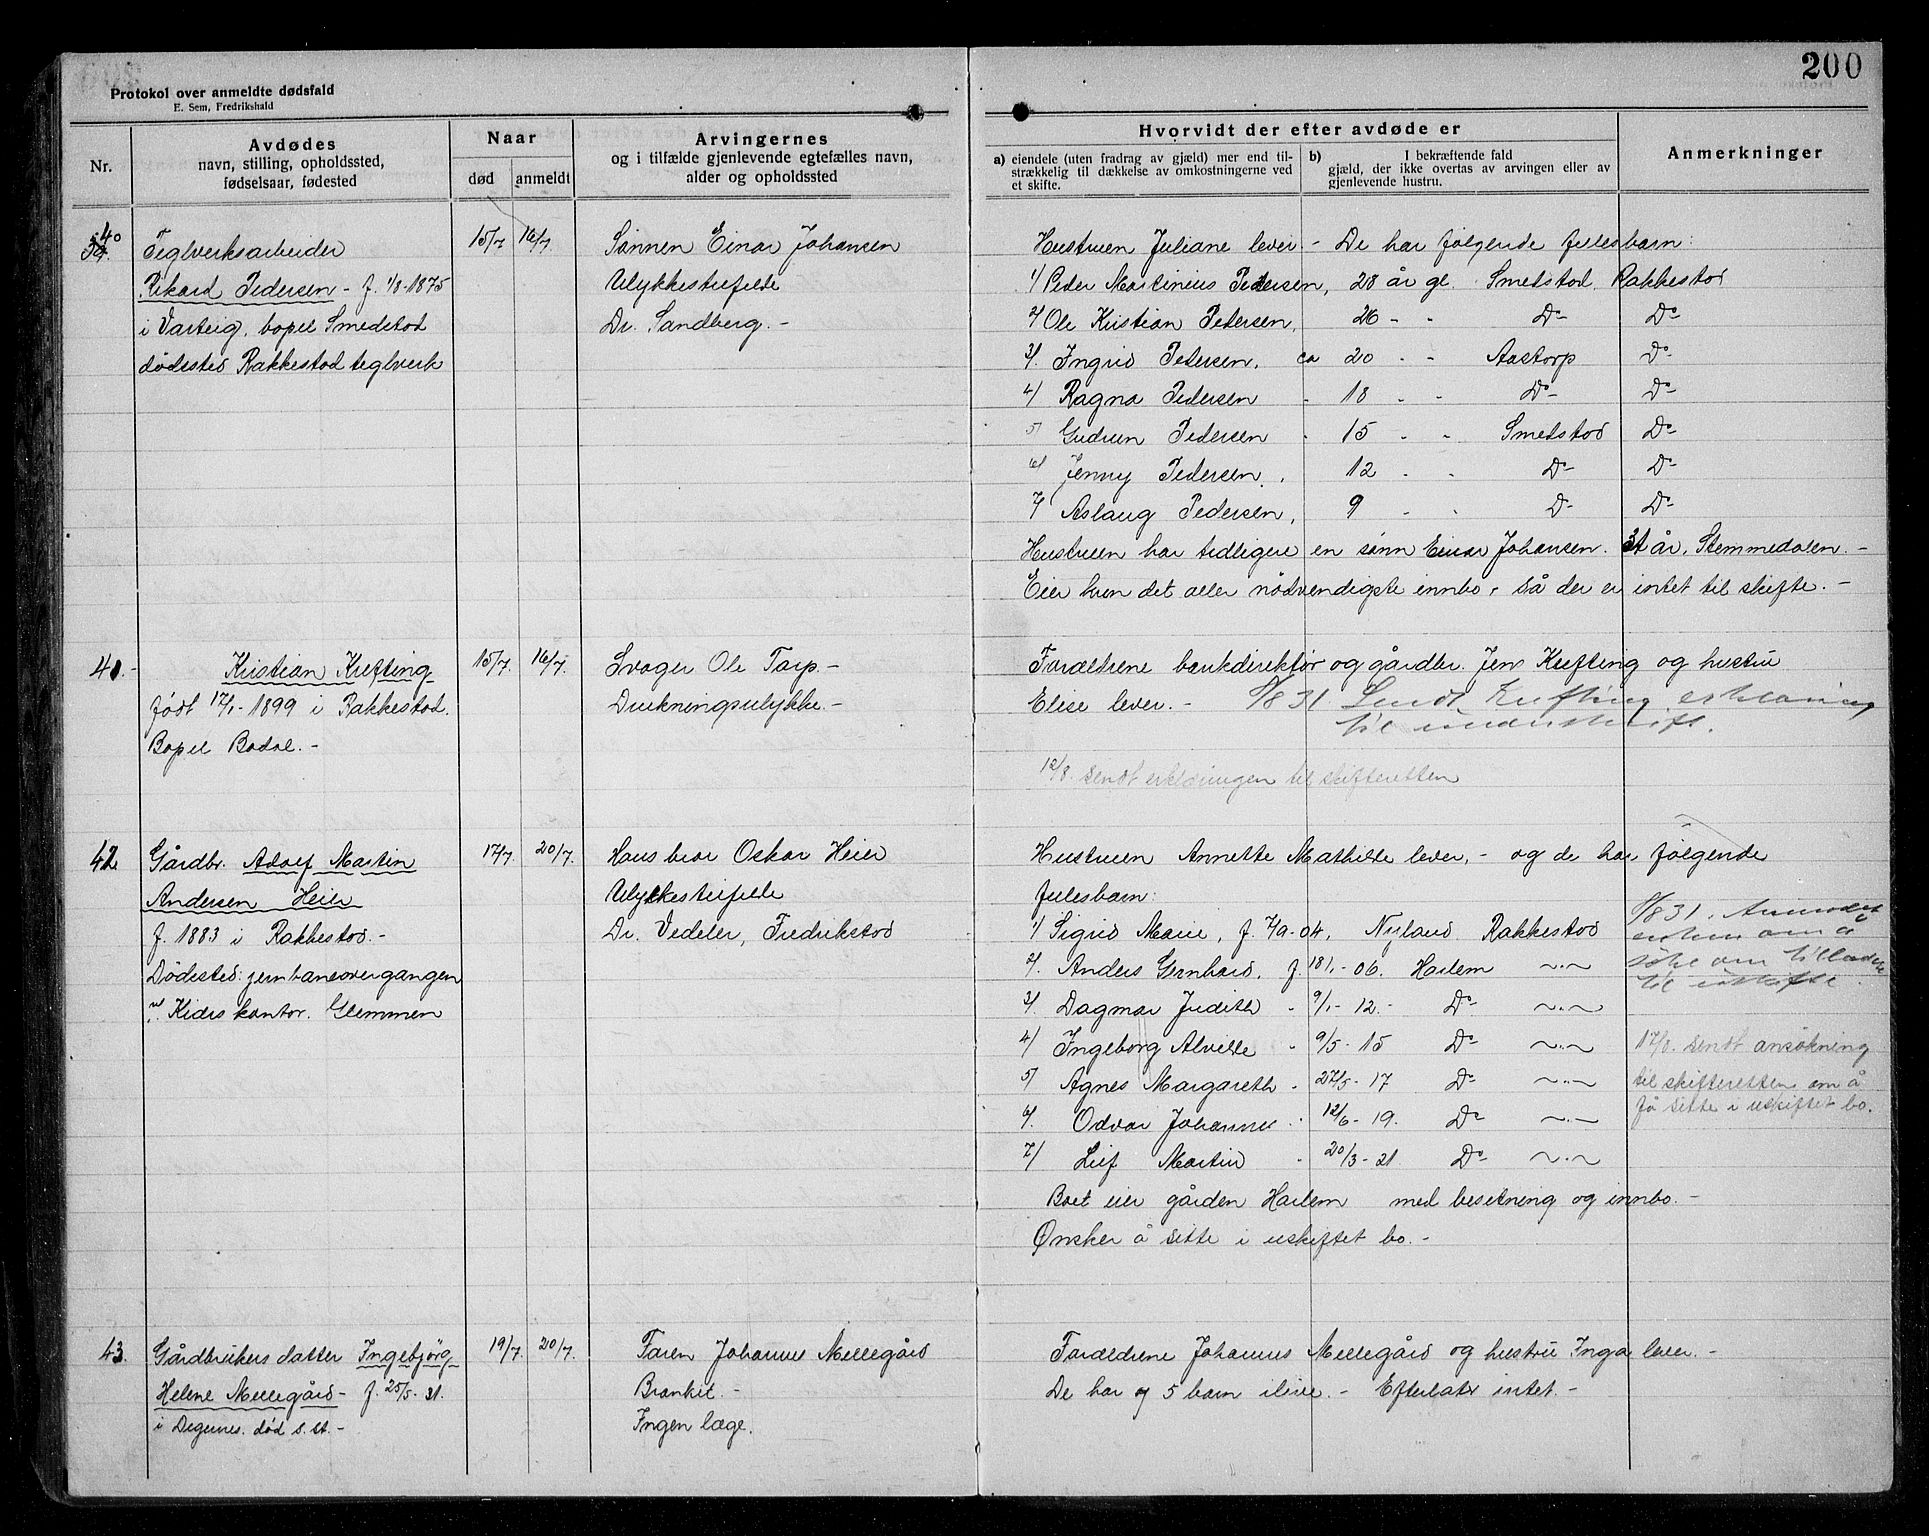 200
Protokol over anmeldte dødsfald
E. Sem, Fredrikshald
Nr.
Avdødes
navn, stilling, opholdssted,
fødselsaar, fødested
Naar
død
anmeldt
Arvingernes
og i tilfælde gjenlevende egtefælles navn,
alder og opholdssted
Hvorvidt der efter avdøde er
a) eiendele (uten fradrag av gjæld) mer end til-
strækkelig til dækkelse av omkostningerne ved
et skifte.
b) I bekræftende fald
gjæld, der ikke overtas av arvingen eller av
gjenlevende hustru.
Anmerkninger
40
Teglverksarbeider
Rikard Pedersen - f. 1/8-1875
i Varteig, bopel Smedstod
dødested Rakkestad teglverk
15/7 16/7
Sønnen Einar Johansen
Ulykkestilfelde
Dr. Sandberg. -
Hustruen Juliane lever. - De har følgende fellesbarn:
1/ Peder Martinius Pedersen, 28 år gl. Smedstod, Rakkestad
2/ Ole Kristian Pedersen, 26 - - Do- Do-
3/ Ingrid Pedersen, ca 20 - - Aastorp Do-
4/ Ragna Pedersen - 18 - - Do- Do-
5/ Gudrun Pedersen - 15 - - Smedstod Do-
6/ Jenny Pedersen, 12 - - Do- Do-
7/ Aslaug Pedersen, 9 - - Do- Do-
Hustruen har tidligere en sønn Einar Johansen. år, Stemmedalen. -
Eier kun det aller nødvendigste innbo, så der er intet til skifte. -
41. -
Kristian Krefting
født 17/1-1899 i Rakkestad.
Bopel Bodal. -
15/7 16/7
Svoger Ole Tarp. -
Drukningsulykke. -
Foreldrene bankdirektør og gårdbr. Jens Krefting og hustru
Elise lever. - /8 31 Sendt Krefting erklæring
til underskrift.
12/8. sendt erklæringen til skifteretten
42
Gårdbr. Adolf Martin
Andersen Heier
f. 1883 i Rakkestad. -
Dødested: jernbaneovergangen
v/ Kiærs kontor. Glemmen
17/7 20/7
Hans bror Oskar Heier
Ulykkestilfelde
Dr. Vedeler, Fredrikstad
Hustruen Annette Mathilde lever, - og de har følgende
fellesbarn:
1/ Sigrid Marie, f. 7/9-04, Nyland Rakkestad
2/ Anders Gernhard, f 18/1-06. Harlem ~.~
3/ Dagmar Judith - 9/1-12. - Do- ~.~
4/ Ingeborg Alvilde - 9/5-15 Do- ~.~
5/ Agnes Margareth - 27/5-17 Do- ~.~
6/ Odvar Johannes - 12/6-19. Do- ~.~
7/ Leif Martin - 20/3-21 Do- ~.~
Boet eier gården Harlem med besetning og innbo. -
Ønsker å sitte i uskiftet bo. -
/8 31. Anmodet
enken om å
søke om tilladelse
til uskifte.
17/8. sendt ansøkning
til skifteretten om å
få sitte i uskiftet bo.
43.
Gårdbrukers datter Ingebjørg
Helene Mellegård - f. 25/5-31.
i Degernes. død s. st. -
19/7. 20/7.
Faren Johannes Mellegård
Bronkit. -
Ingen læge.
Foreldrene Johannes Mellegård og hustru Inga lever. -
De har og 5 barn ilive. - Efterlater intet. -